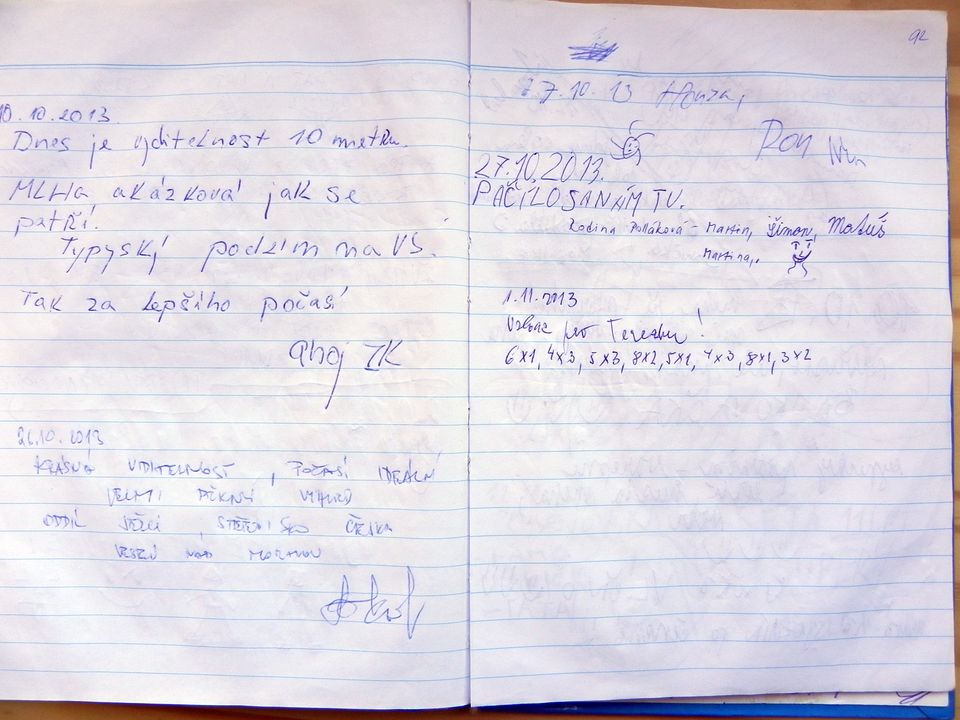 10.10.2013.
Dnes je viditelnost 10 metru.
MLHA ukázková jak se
patří.
Typyský podzim na VS.
Tak za lepšího počasí
ahoj IK
26.10.2013
KRÁSNÁ VIDITELNOST, POČASÍ IDEÁLNÍ
VELMI PĚKNÝ VÝHLED
ODDÍL STŘEDISKO ČESKA
VESELÍ NAD MORAVOU
92
27.10.13 Honza,
Ron
27.10.2013.
PÁČILO SA NÁM TU.
Rodina Polláková - Martin, Šimon, Matúš
Martina,.
1.11.2013
Vzkaz pro Terezku!
6x1, 4x3, 5x3, 8x2, 5x1, 4x3, 8x1, 3x2